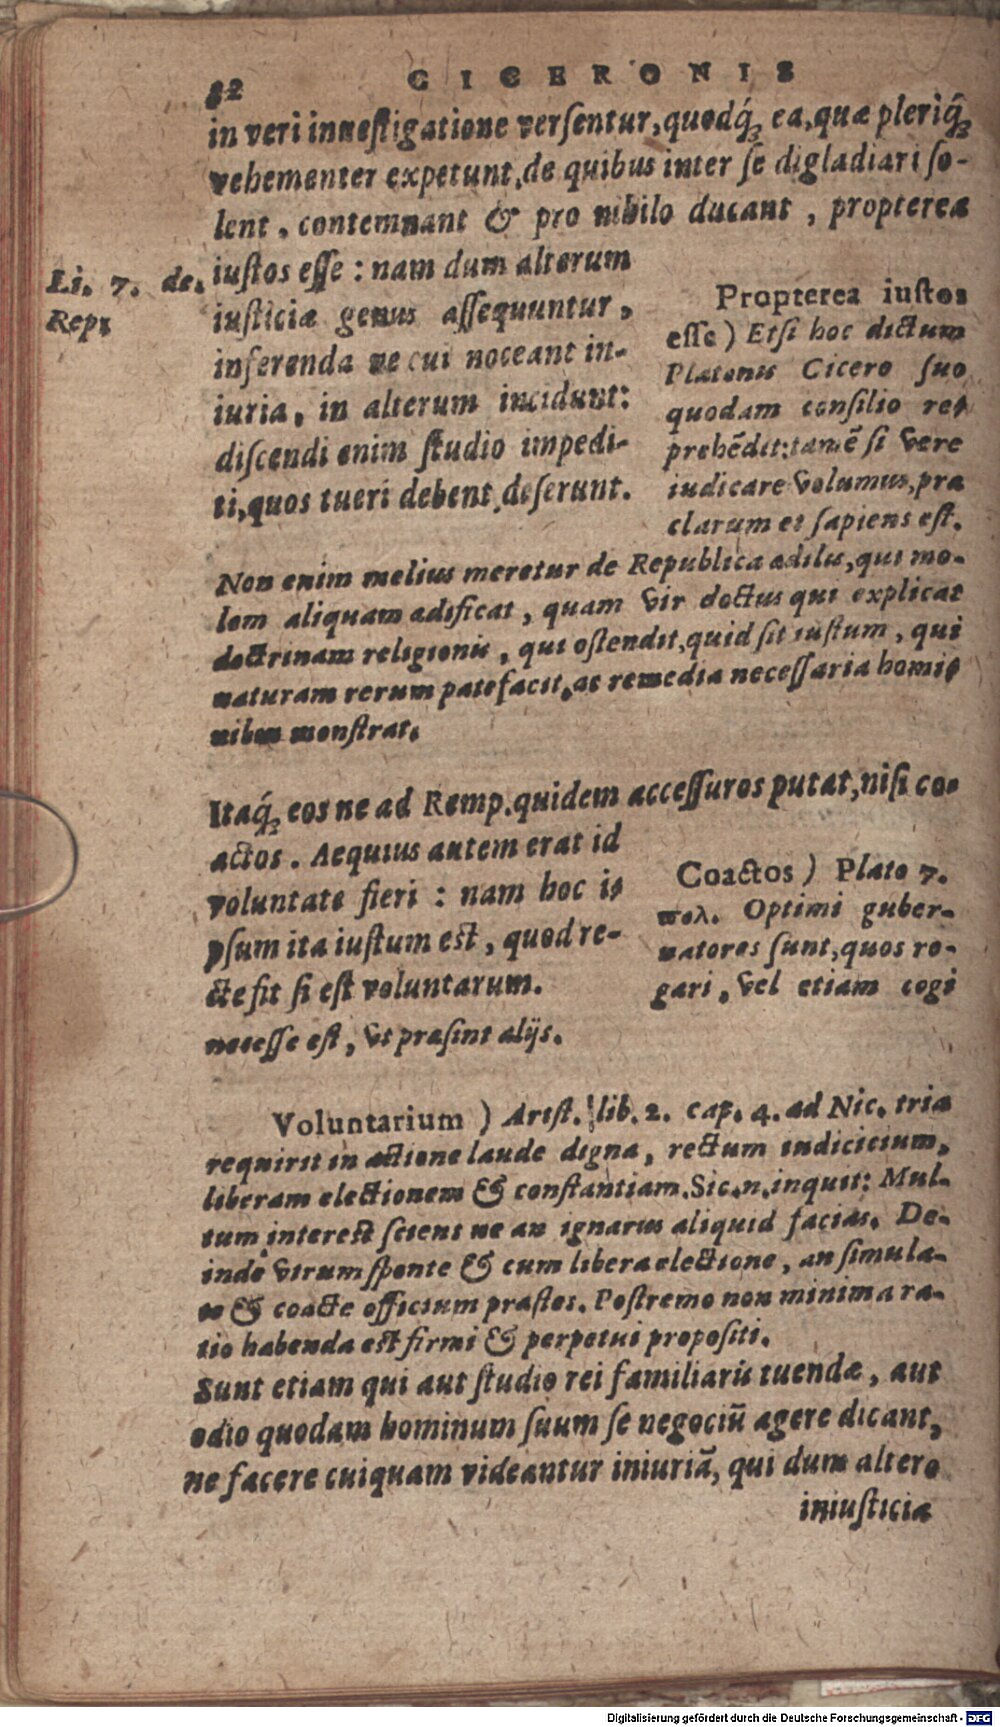 82 CICERONIS
in veri inuestigatione versentur, quodq́; ea, quæ pleriq́;
vehementer expetunt, de quibus inter se digladiari so-
lent, contemnant & pro nihilo ducant, propterea
Li. 7. de.
Rep:
iustos esse: nam dum alterum
iusticiæ genus assequuntur,
inferenda ne cui noceant in-
iuria, in alterum incidunt:
discendi enim studio impedi-
ti, quos tueri debent, deserunt.
Propterea iustos
esse) Etsi hoc dictum
Platonis Cicero suo
quodam consilio re-
prehẽdit: tamẽ si vere
iudicare volumus, præ
clarum et sapiens est.
Non enim melius meretur de Republica ædilis, qui mo-
lem aliquam ædificat, quam vir doctus qui explicat
doctrinam religionis, qui ostendit, quid sit iustum, qui
naturam rerum patefacit, ac remedia necessaria homi-
nibus monstrat.
Itaq́; eos ne ad Remp. quidem accessuros putat, nisi co-
actos. Aequius autem erat id
voluntate fieri: nam hoc i-
psum ita iustum est, quod re-
cte fit si est voluntarum.
Coactos) Plato 7.
πολ. Optimi guber-
natores sunt, quos ro-
gari, vel etiam cogi
necesse est, vt præsint alijs.
Voluntarium) Arist. lib. 2. cap. 4. ad Nic. tria
requirit in actione laude digna, rectum iudicium,
liberam electionem & constantiam. Sic. n. inquit: Mul-
tum interest sciens ne an ignarus aliquid facias. De-
inde vtrum sponte & cum libera electione, an simula-
te & coacte officium præstes. Postremo non minima ra-
tio habenda est firmi & perpetui propositi.
Sunt etiam qui aut studio rei familiaris tuendæ, aut
odio quodam hominum suum se negociũ agere dicant,
ne facere cuiquam videantur iniuriã, qui dum altero
iniusticiæ
Digitalisierung gefördert durch die Deutsche Forschungsgemeinschaft - DFG